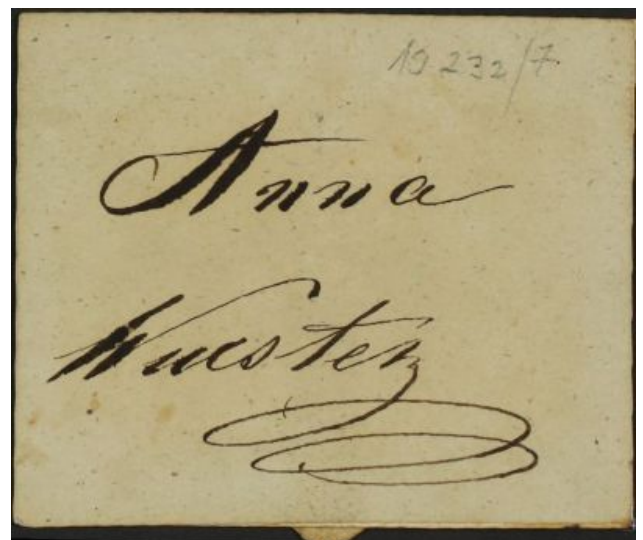 19232/7
Anna
Wuester